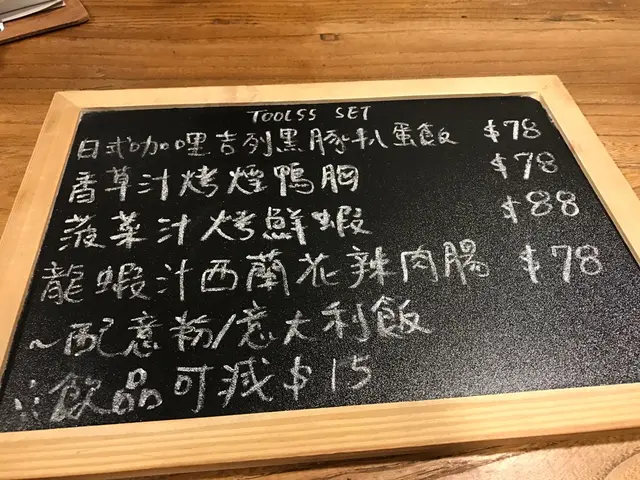 TOOLSS SET
日式咖哩吉列黑豚扒蛋飯 $78
香草汁烤煙鴨胸 $78
菠菜汁烤鮮蝦 $88
龍蝦汁西蘭花辣肉腸 $78
~配意粉/意大利飯
飲品可減$15